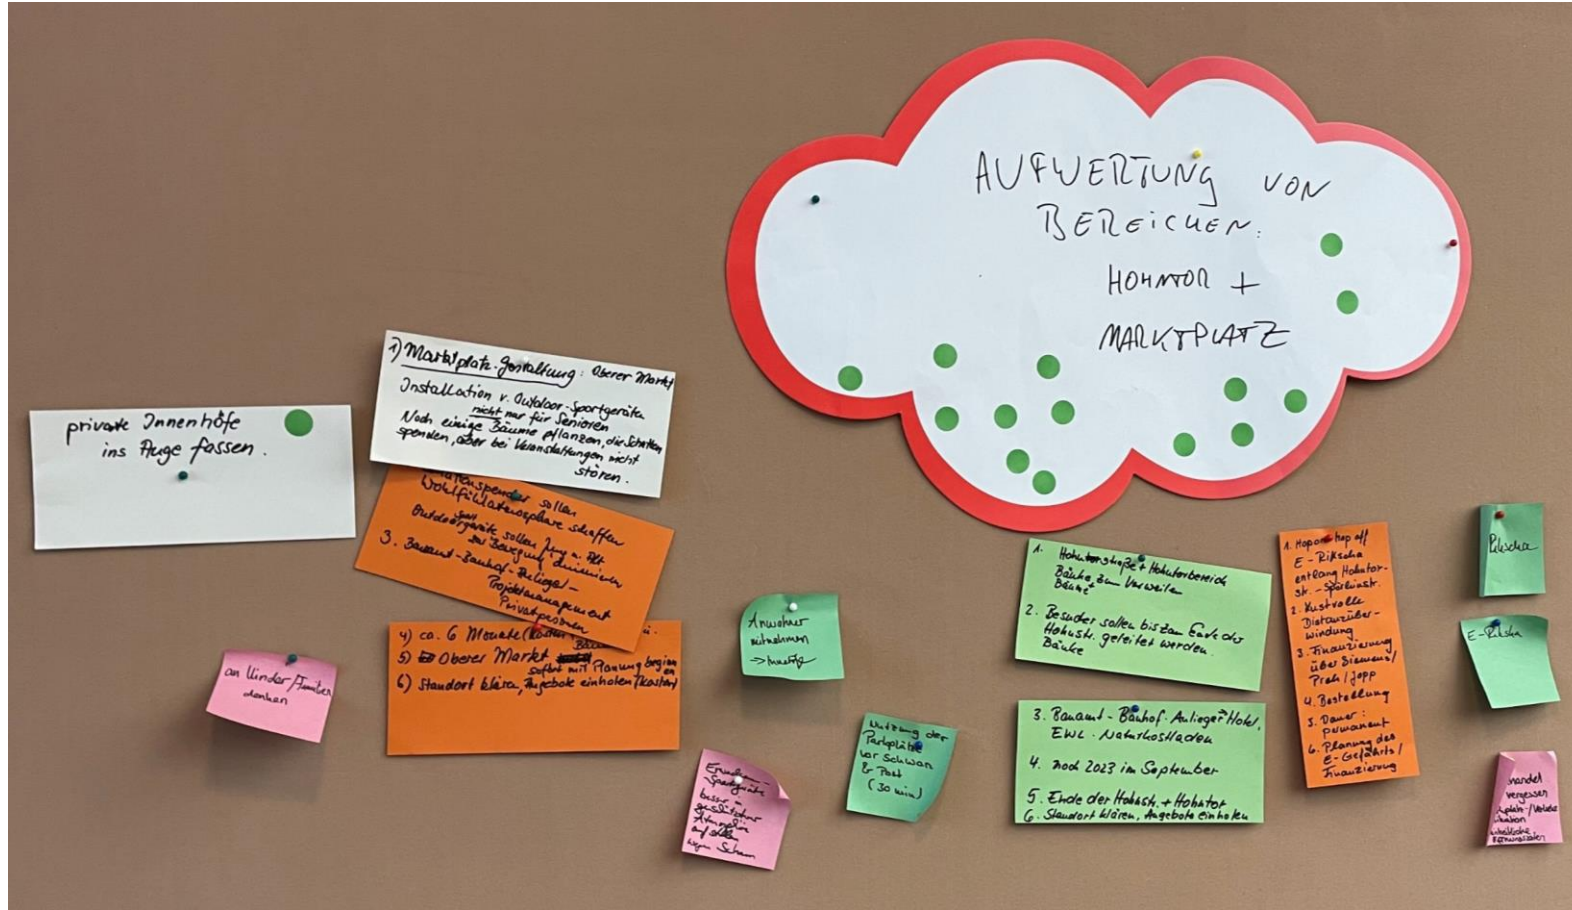 AUFWERTUNG VON
BEREICHEN:
HOHNTOR +
MARKTPLATZ
private Innenhöfe
ins Auge fassen.
1) Marktplatz-gestaltung: Oberer Markt
Installation v. Outdoor-Sportgeräte
nicht nur für Senioren
Noch einige Bäume pflanzen, die Schatten
spenden, aber bei Veranstaltungen nicht
stören.
sollen
Wohlfühlatmosphäre schaffen
Outdoorsportgeräte sollen Jung u. Alt
zur Bewegung animieren
3. Bauamt-Bauhof-Anlieger-
Projektmanagement
Privatpersonen
4) ca. 6 Monate (Kosten
5) Oberer Markt
sofort mit Planung beginnen
6) Standort klären, Angebote einholen (Kosten)
an Kinder/Familien
denken
Anwohner
mitnehmen
Sportgeräte
besser in
geschützter
Atmosphäre
aufstellen
wegen Scham
Nutzung der
Parkplätze
vor Schwan
& Post
(30 min)
1. Hohntorstraße + Hohntorbereich
Bänke zum Verweilen
Bäume
2. Besucher sollen bis zum Ende der
Hohnstr. geleitet werden.
Bänke
3. Bauamt-Bauhof-Anlieger Hotel,
EWL-Naturkostladen
4. noch 2023 im September
5. Ende der Hohnstr. + Hohntor
6. Standort klären, Angebote einholen
1. Hop on-hop off
E-Rikscha
entlang Hohntor-
str.-Spörleinstr.
2. Lustvolle
Distanzüber-
windung
3. Finanzierung
über Siemens/
Preh/Jopp
4. Bestellung
5. Dauer:
permanent
6. Planung des
E-Gefährts/
Finanzierung
Rikscha
E-Rikscha
Handel
vergessen